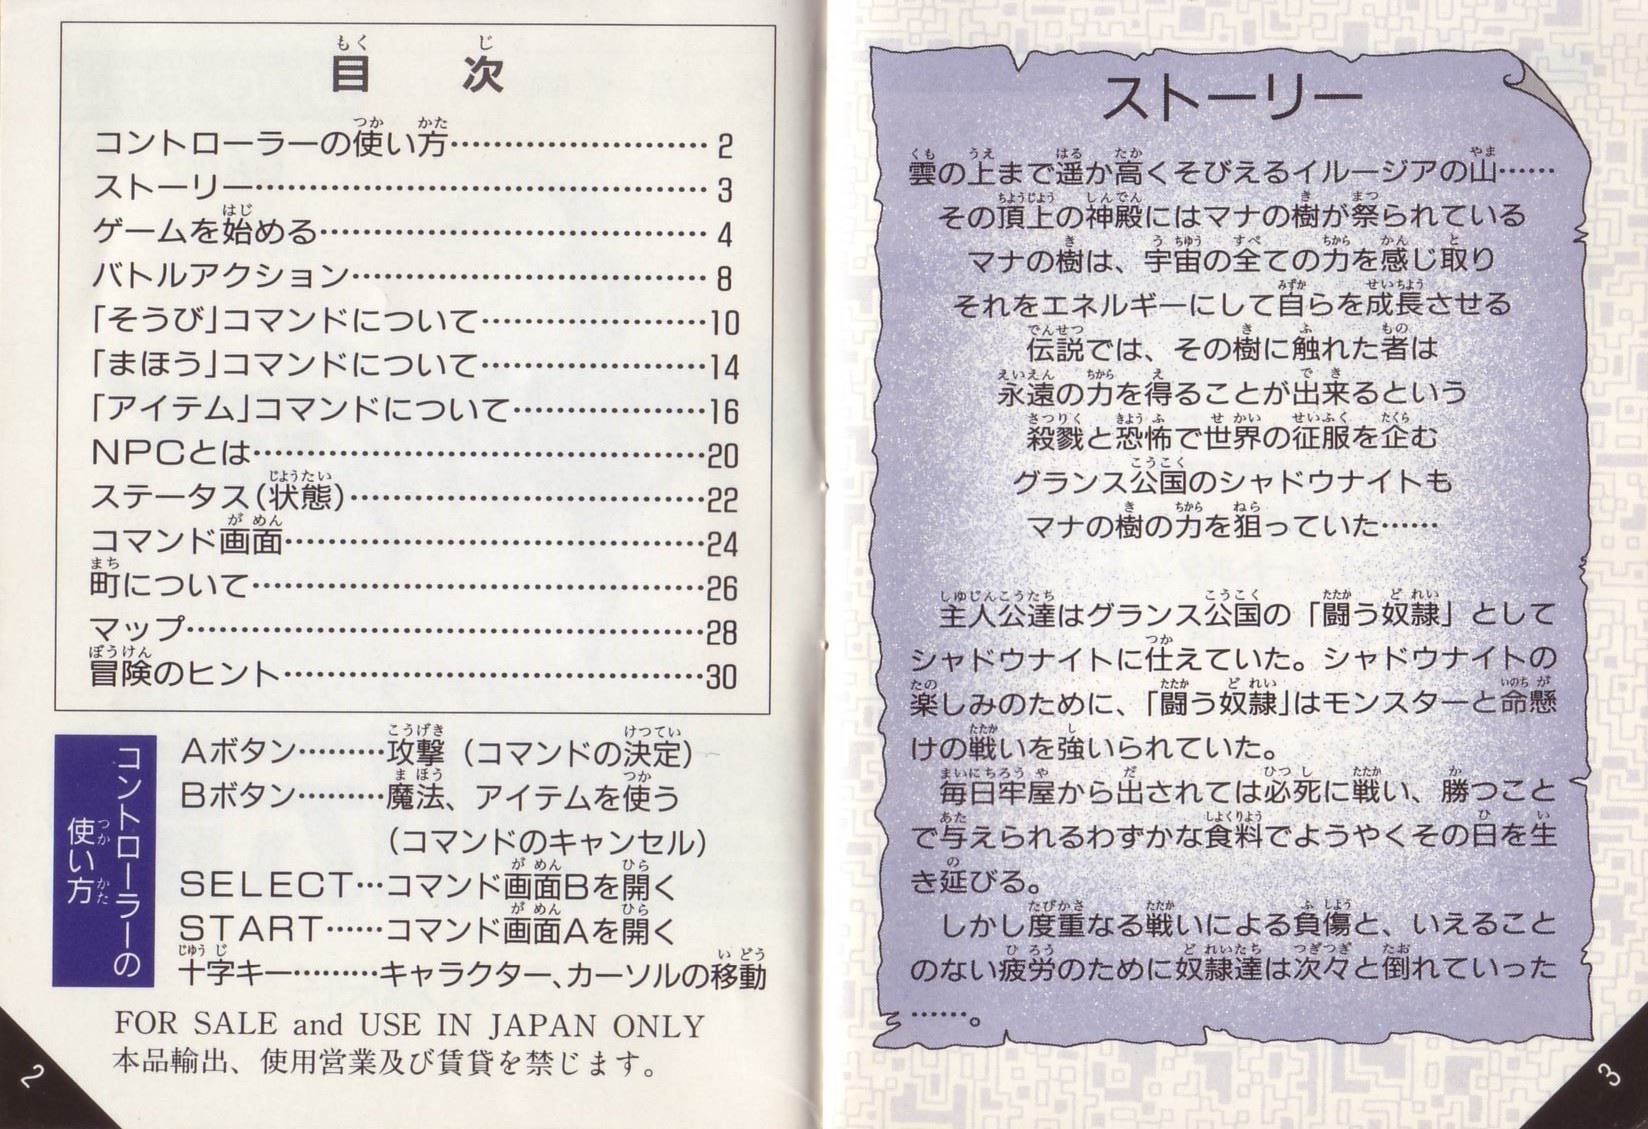 目 次
コントローラーの使い方……………………2
ストーリー……………………………………3
ゲームを始める………………………………4
バトルアクション……………………………8
「そうび」コマンドについて…………………10
「まほう」コマンドについて…………………14
「アイテム」コマンドについて………………16
NPCとは……………………………………20
ステータス(状態)……………………………22
コマンド画面…………………………………24
町について……………………………………26
マップ…………………………………………28
冒険のヒント…………………………………30
コントローラーの
使い方
Aボタン………攻撃(コマンドの決定)
Bボタン………魔法、アイテムを使う
(コマンドのキャンセル)
SELECT…コマンド画面Bを開く
START……コマンド画面Aを開く
十字キー………キャラクター、カーソルの移動
FOR SALE and USE IN JAPAN ONLY
本品輸出、使用営業及び賃貸を禁じます。
2
ストーリー
雲の上まで遥か高くそびえるイルージアの山……
その頂上の神殿にはマナの樹が祭られている
マナの樹は、宇宙の全ての力を感じ取り
それをエネルギーにして自らを成長させる
伝説では、その樹に触れた者は
永遠の力を得ることが出来るという
殺戮と恐怖で世界の征服を企む
グランス公国のシャドウナイトも
マナの樹の力を狙っていた……
主人公達はグランス公国の「闘う奴隷」として
シャドウナイトに仕えていた。シャドウナイトの
楽しみのために、「闘う奴隷」はモンスターと命懸
けの戦いを強いられていた。
毎日牢屋から出されては必死に戦い、勝つこと
で与えられるわずかな食料でようやくその日を生
き延びる。
しかし度重なる戦いによる負傷と、いえること
のない疲労のために奴隷達は次々と倒れていった
……。
3